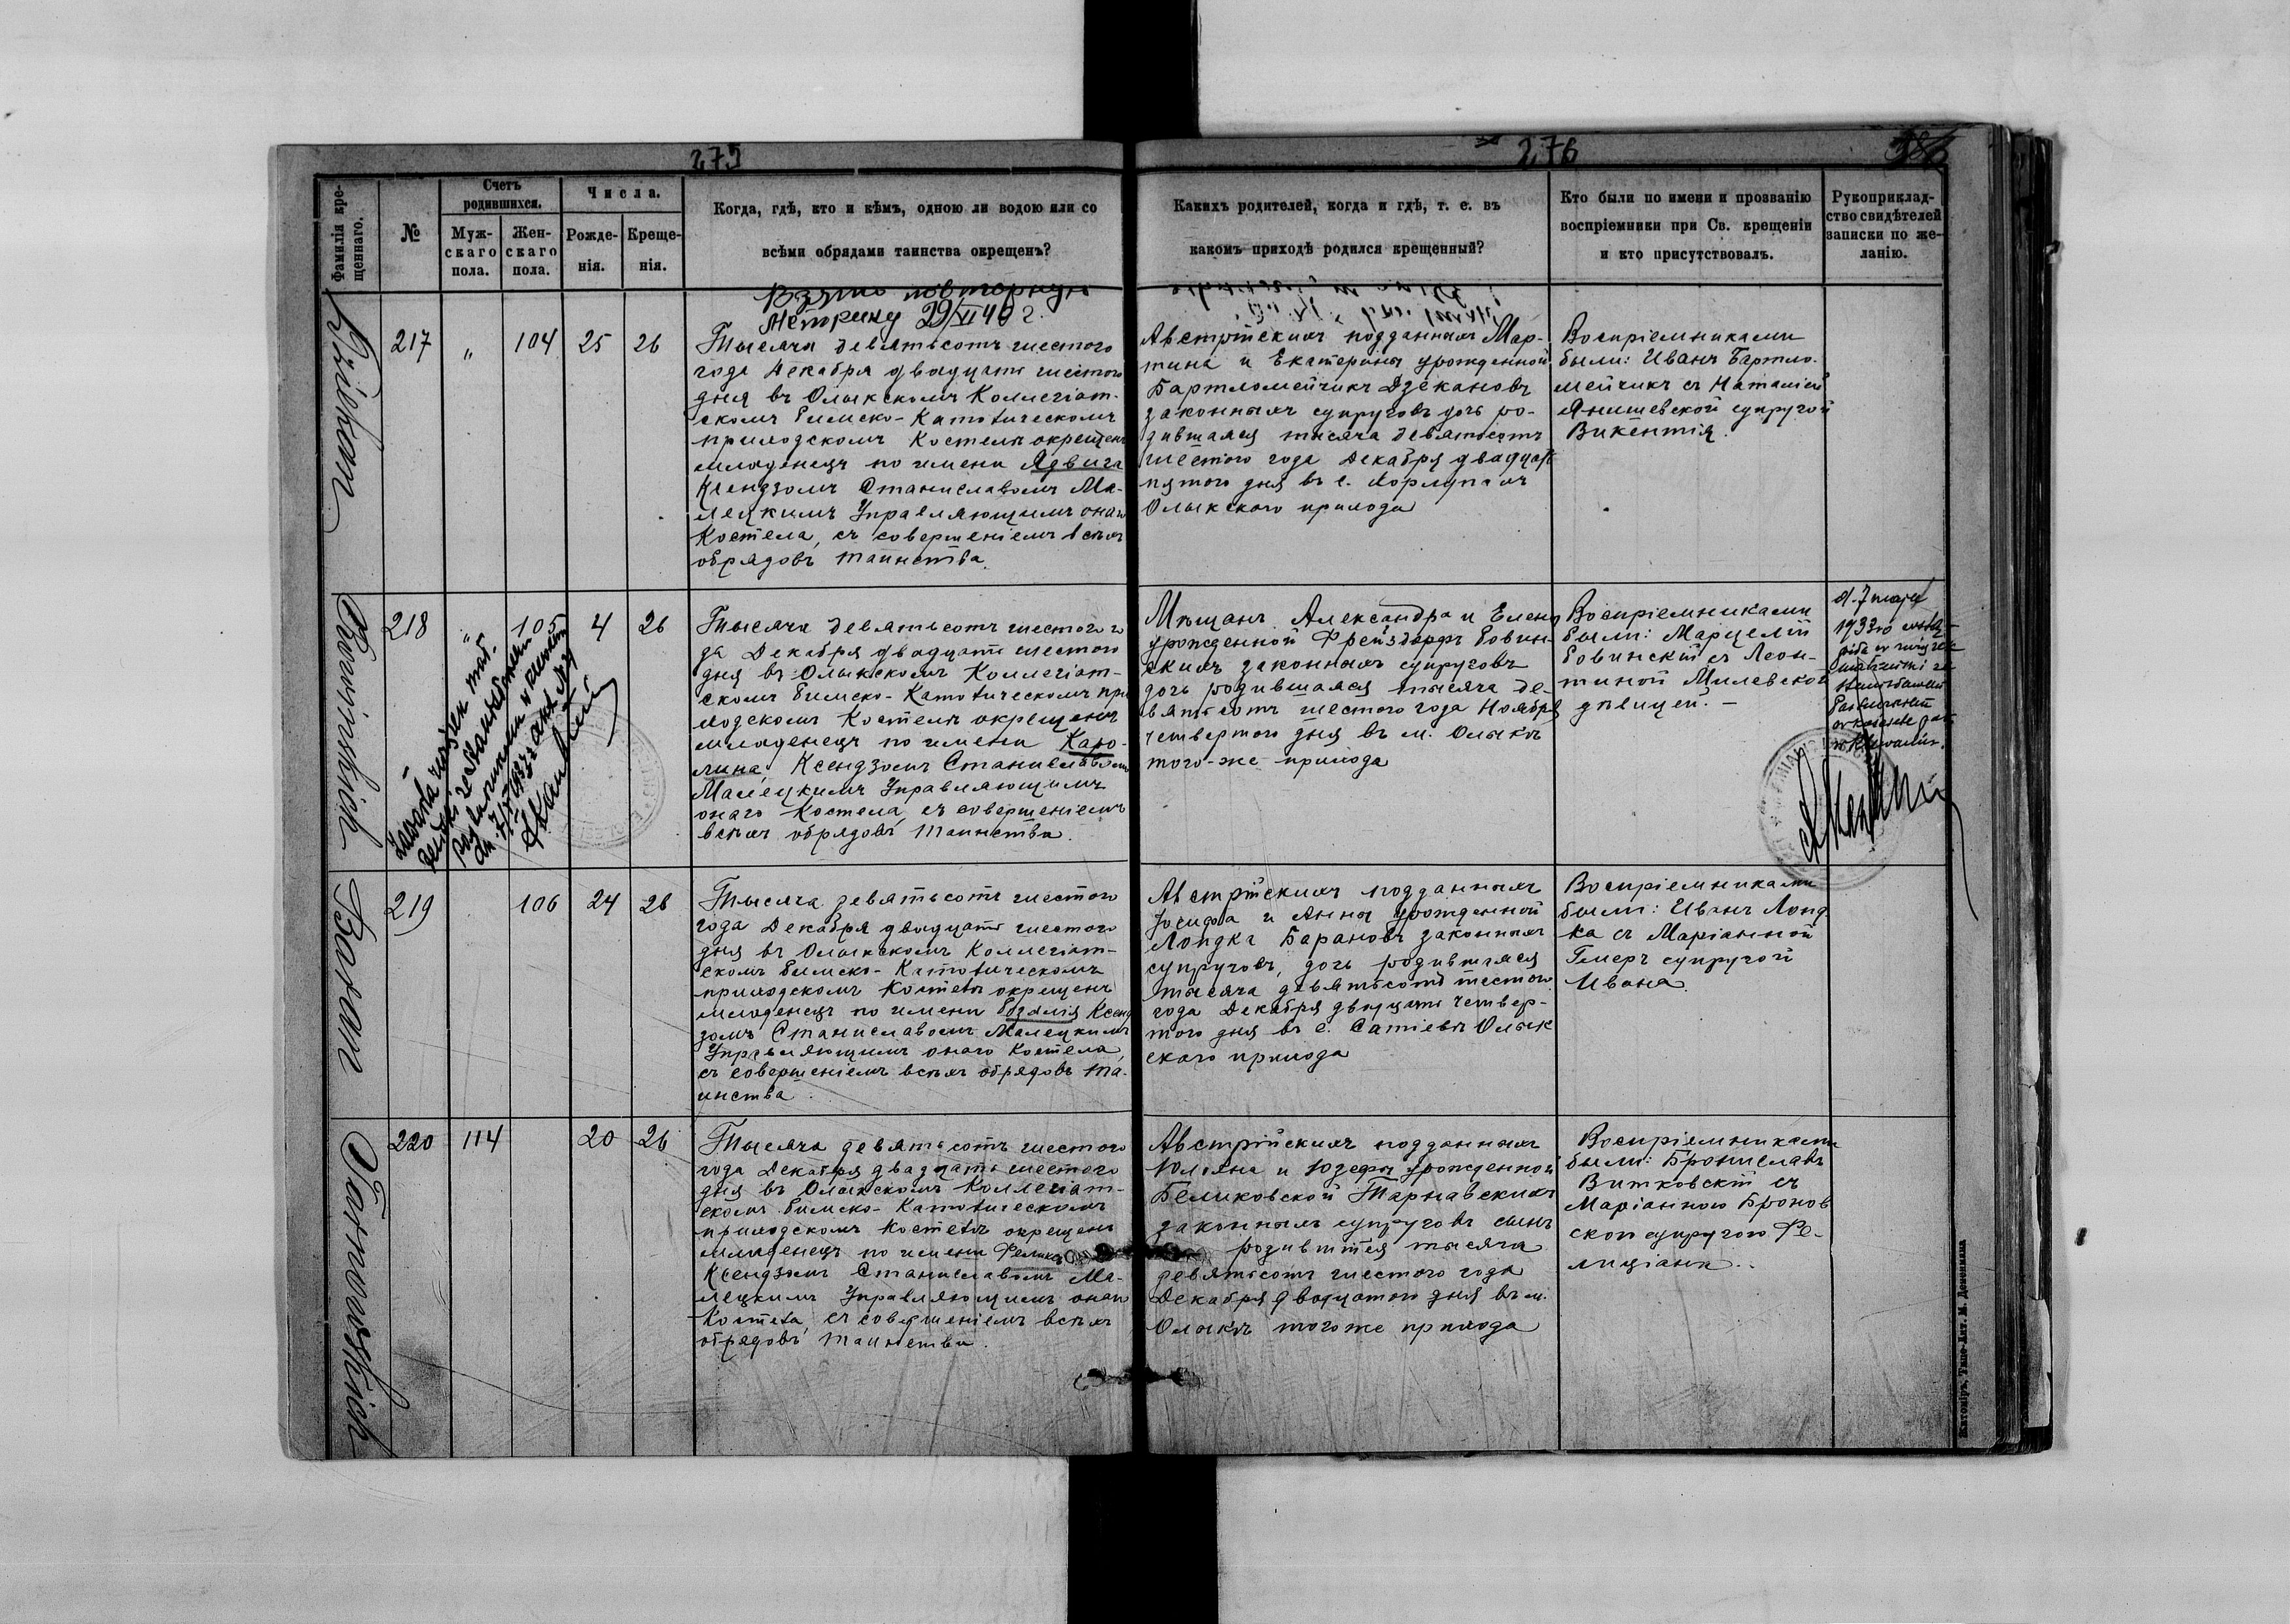 275
276
Фамилія кре-
щеннаго.
№
Счетъ
родившихся.
Муж-
скаго
пола.
Жен-
скаго
пола.
Числа.
Рожде-
нія.
Креще-
нія.
Когда, гдѣ, кто и кѣмъ, одною ли водою или со
всѣми обрядами таинства окрещенъ?
Какихъ родителей, когда и гдѣ, т. е. въ
какомъ приходѣ родился крещенный?
Кто были по имени и прозванію
воспріемники при Св. крещеніи
и кто присутствовалъ.
Рукоприклад-
ство свидѣтелей
записки по же-
ланію.
Взято повторную
Метрику 29/VI 40 г.
217
"
104
25
26
Тысяча девятьсотъ шестого
года Декабря двадцать шестого
дня въ Олыкскомъ Коллегіат-
скомъ Римско-Католическомъ
приходскомъ Костелѣ окрещенъ
младенецъ по имени Ядвига
Ксендзомъ Станиславомъ Ма-
лецкимъ Управляющимъ онаго
Костела, съ совершеніемъ всѣхъ
обрядовъ таинства.
Австрійскихъ подданныхъ Мар-
тина и Екатерины урожденной
Бартломейчикъ Дзекановъ
законныхъ супруговъ дочь ро-
дившаяся тысяча девятьсотъ
шестого года Декабря двадцать
пятого дня въ с. Хорлупахъ
Олыкского прихода
Воспріемниками
были: Иванъ Бартло-
мейчикъ съ Наталіей
Янишевской супругой
Викентія.
Rowińskich
218
"
105
4
26
Тысяча девятьсотъ шестого го
да Декабря двадцать шестого
дня въ Олыкскомъ Коллегіат-
скомъ Римско-Католическомъ при
ходскомъ Костелѣ окрещенъ
младенецъ по имени Каро-
лина, Ксендзомъ Станиславомъ
Малецкимъ Управляющимъ
онаго Костела, съ совершеніемъ
всѣхъ обрядовъ таинства.
Мѣщанъ Александра и Елены
урожденной Фрейздорфъ Ровин-
скихъ законныхъ супруговъ
дочь родившаяся тысяча де-
вятьсотъ шестого года Ноября
четвертого дня въ м. Олыкѣ
того-же прихода
Воспріемниками
были: Марцелій
Ровинскій съ Леон-
тиной Милевской
дѣвицей. —
1933
Baran
219
106
24
26
Тысяча девятьсотъ шестого
года Декабря двадцать шестого
дня въ Олыкскомъ Коллегіат-
скомъ Римско-Католическомъ
приходскомъ Костелѣ окрещенъ
младенецъ по имени Розалія Ксенд
зомъ Станиславомъ Малецкимъ
Управляющимъ онаго Костела,
съ совершеніемъ всѣхъ обрядовъ та-
инства.
Австрійскихъ подданныхъ
Іосифа и Анны урожденной
Лондка Барановъ законныхъ
супруговъ, дочь родившаяся
тысяча девятьсотъ шестого
года Декабря двадцать четвер-
того дня въ с. Сатіевѣ Олык
ского прихода
Воспріемниками
были: Иванъ Лонд
ка съ Маріанной
Гмеръ супругой
Ивана.
Tarnawskich
220
114
20
26
Тысяча девятьсотъ шестого
года Декабря двадцать шестого
дня въ Олыкскомъ Коллегіат-
скомъ Римско-Католическомъ
приходскомъ Костелѣ окрещенъ
младенецъ по имени Феликсъ
Ксендзомъ Станиславомъ Ма-
лецкимъ Управляющимъ онаго
Костела, съ совершеніемъ всѣхъ
обрядовъ таинства.
Австрійскихъ подданныхъ
Юліяна и Юзефы урожденной
Беликовской Тарнавскихъ
законныхъ супруговъ сынъ
родившійся тысяча
девятьсотъ шестого года
Декабря двадцатого дня въ м.
Олыкѣ тогоже прихода
Воспріемниками
были: Брониславъ
Витковскій съ
Маріанною Бронов
ской супругою Фе-
лиціана.
Житоміръ, Типо-Лит. М. Дененмана